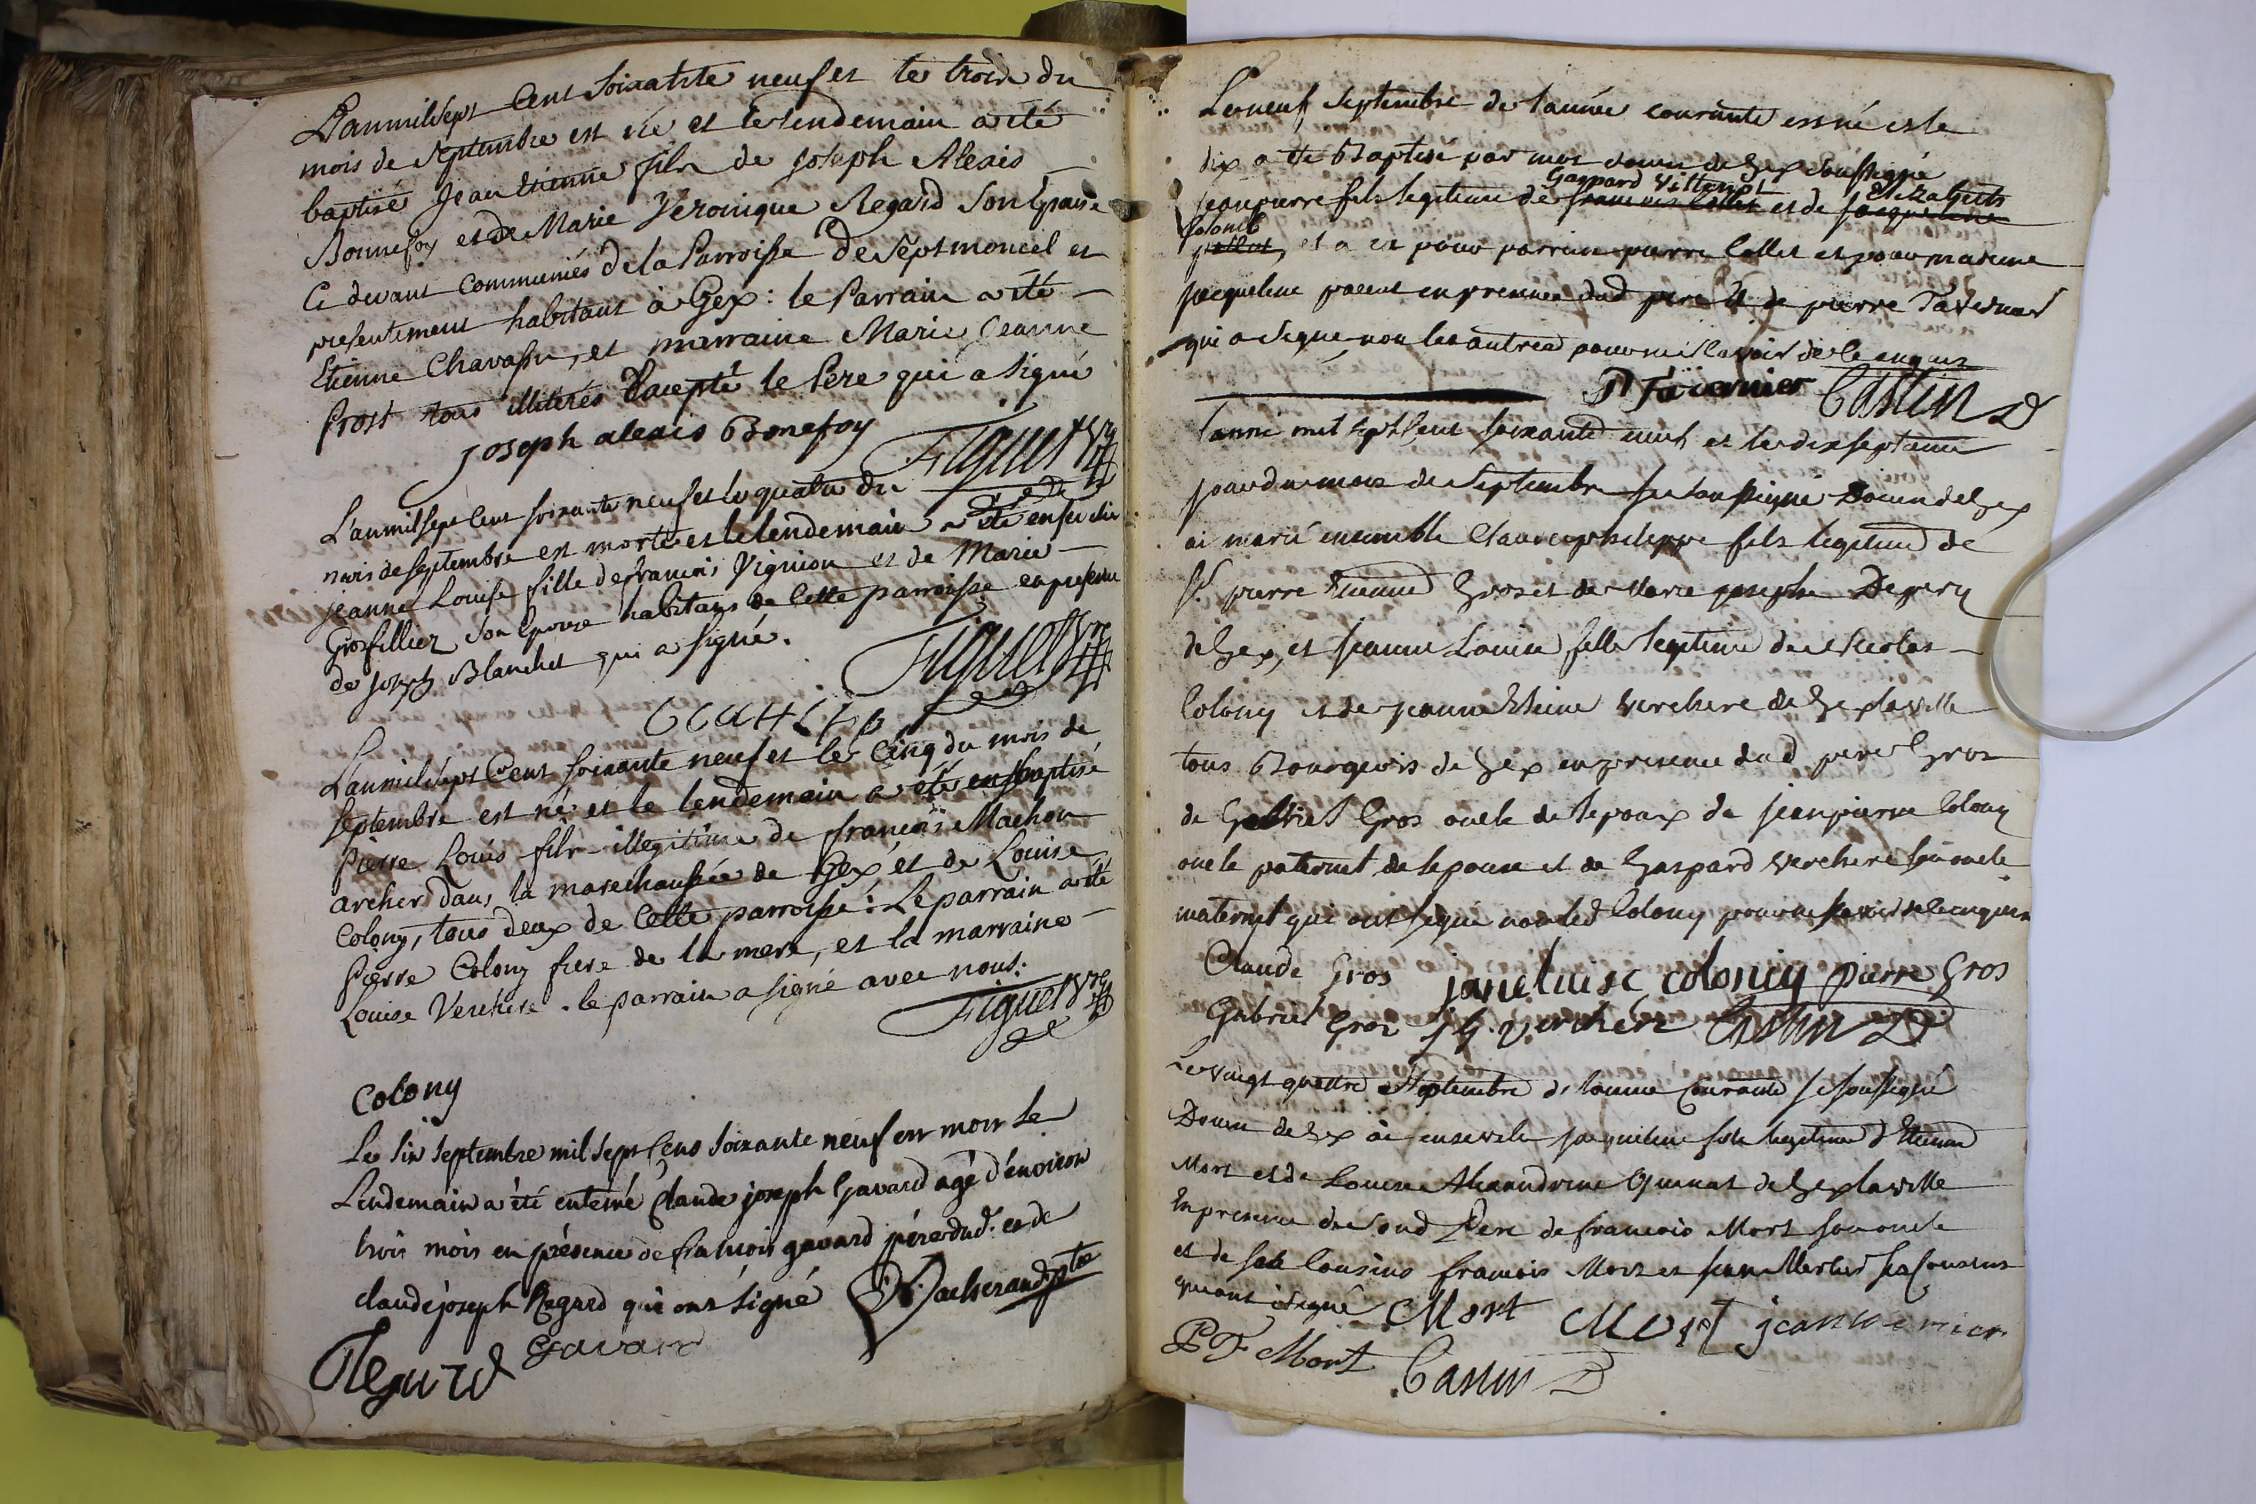 L'an mil sept Cent Soixante neuf et le trois du
mois de Septembre est né et le lendemain a été
baptisé Jean Etienne fils de Joseph Alexis
Bonnefoy et de Marie Veronique Regard Son Epouse
Ci devant Communiés de la Parroisse de Septmoncel et
presentement habitant à Gex : le Parrain a été
Etienne Chavassu, et marraine Marie Jeanne
Prost tous illiterés Excepté le Pere qui a Signé
Joseph alexis Bonefoy
Figuet
L'an mil sept Cent soixante neuf et le quatre du
mois de septembre est morte et le lendemain a été ensevelie
jeanne Louise fille de francois Vignion et de Marie
Grosfillier Son Epouse habitans de Cette parroisse en presence
de Joseph Blanchet qui a signé.
Figuet
L'an mil sept Cent soixante neuf et le Cinq du mois de
septembre est né et le lendemain a été baptisé
Pierre Louis fils illegitime de françois Machon
archer dans la marechaussée de Gex et de Louise
Colony, tous deux de Cette parroisse : Le parrain a été
Pierre Colony frere de la mere, et la marraine
Louise Verchere . le parrain a signé avec nous.
Figuet
Colony
Le Six Septembre mil sept Cens Soixante neuf est mort le
Lendemain a été enterré Claude joseph Gavard agé d'environ
trois mois en présence de francois gavard père dud. et de
claude joseph Regard qui ont signé
Regard Gavard
Le neuf Septembre de l'année courante est né et le
dix a été Baptisé par moi doien de Gex Soussigné
Gaspard Elizabeth
jean pierre fils legitime de et de
et a eu pour parrain pierre Collet et pour maraine
jacqueline en presence dud pere et de pierre
qui a signé non les autres pour ne scavoir de ce enquis
Castin D
l'anné mil sept Cent soixante neuf et le dixseptieme
jour du mois de Septembre je soussigné Doien de Gex
ai marié ensemble Claude philippe fils legitime de
Sr. pierre Etienne Gros et de Marie josephe Degery
de Gex, et jeanne Louise fille legitime de Nicolas
Colony et de jeanne Verchere de Gex la ville
tous Bourgeois de Gex en presence dud pere Gros
de Gabriel Gros oncle de l'epoux de jean pierre Colony
oncle paternel de l'epouse et de Gaspard Verchere son oncle
maternel qui ont signé non led Colony pour ne scavoir de ce enquis
Claude Gros jane luise colony pierre Gros
Gabriel Gros J G. verchere Castin D
Le vingt quattre Septembre de l'annee Courante je soussigné
Doien de Gex ai enseveli jacqueline fille legitime d'Etienne
Mort et de Louise Alexandrine de Gex la ville
En presence de Sond Pere de francois Mort son oncle
et de ses Cousins francois Mort et jean Mercier ses Cousins
qui ont signé Mort Mort jean mercier
P F Mort Castin D